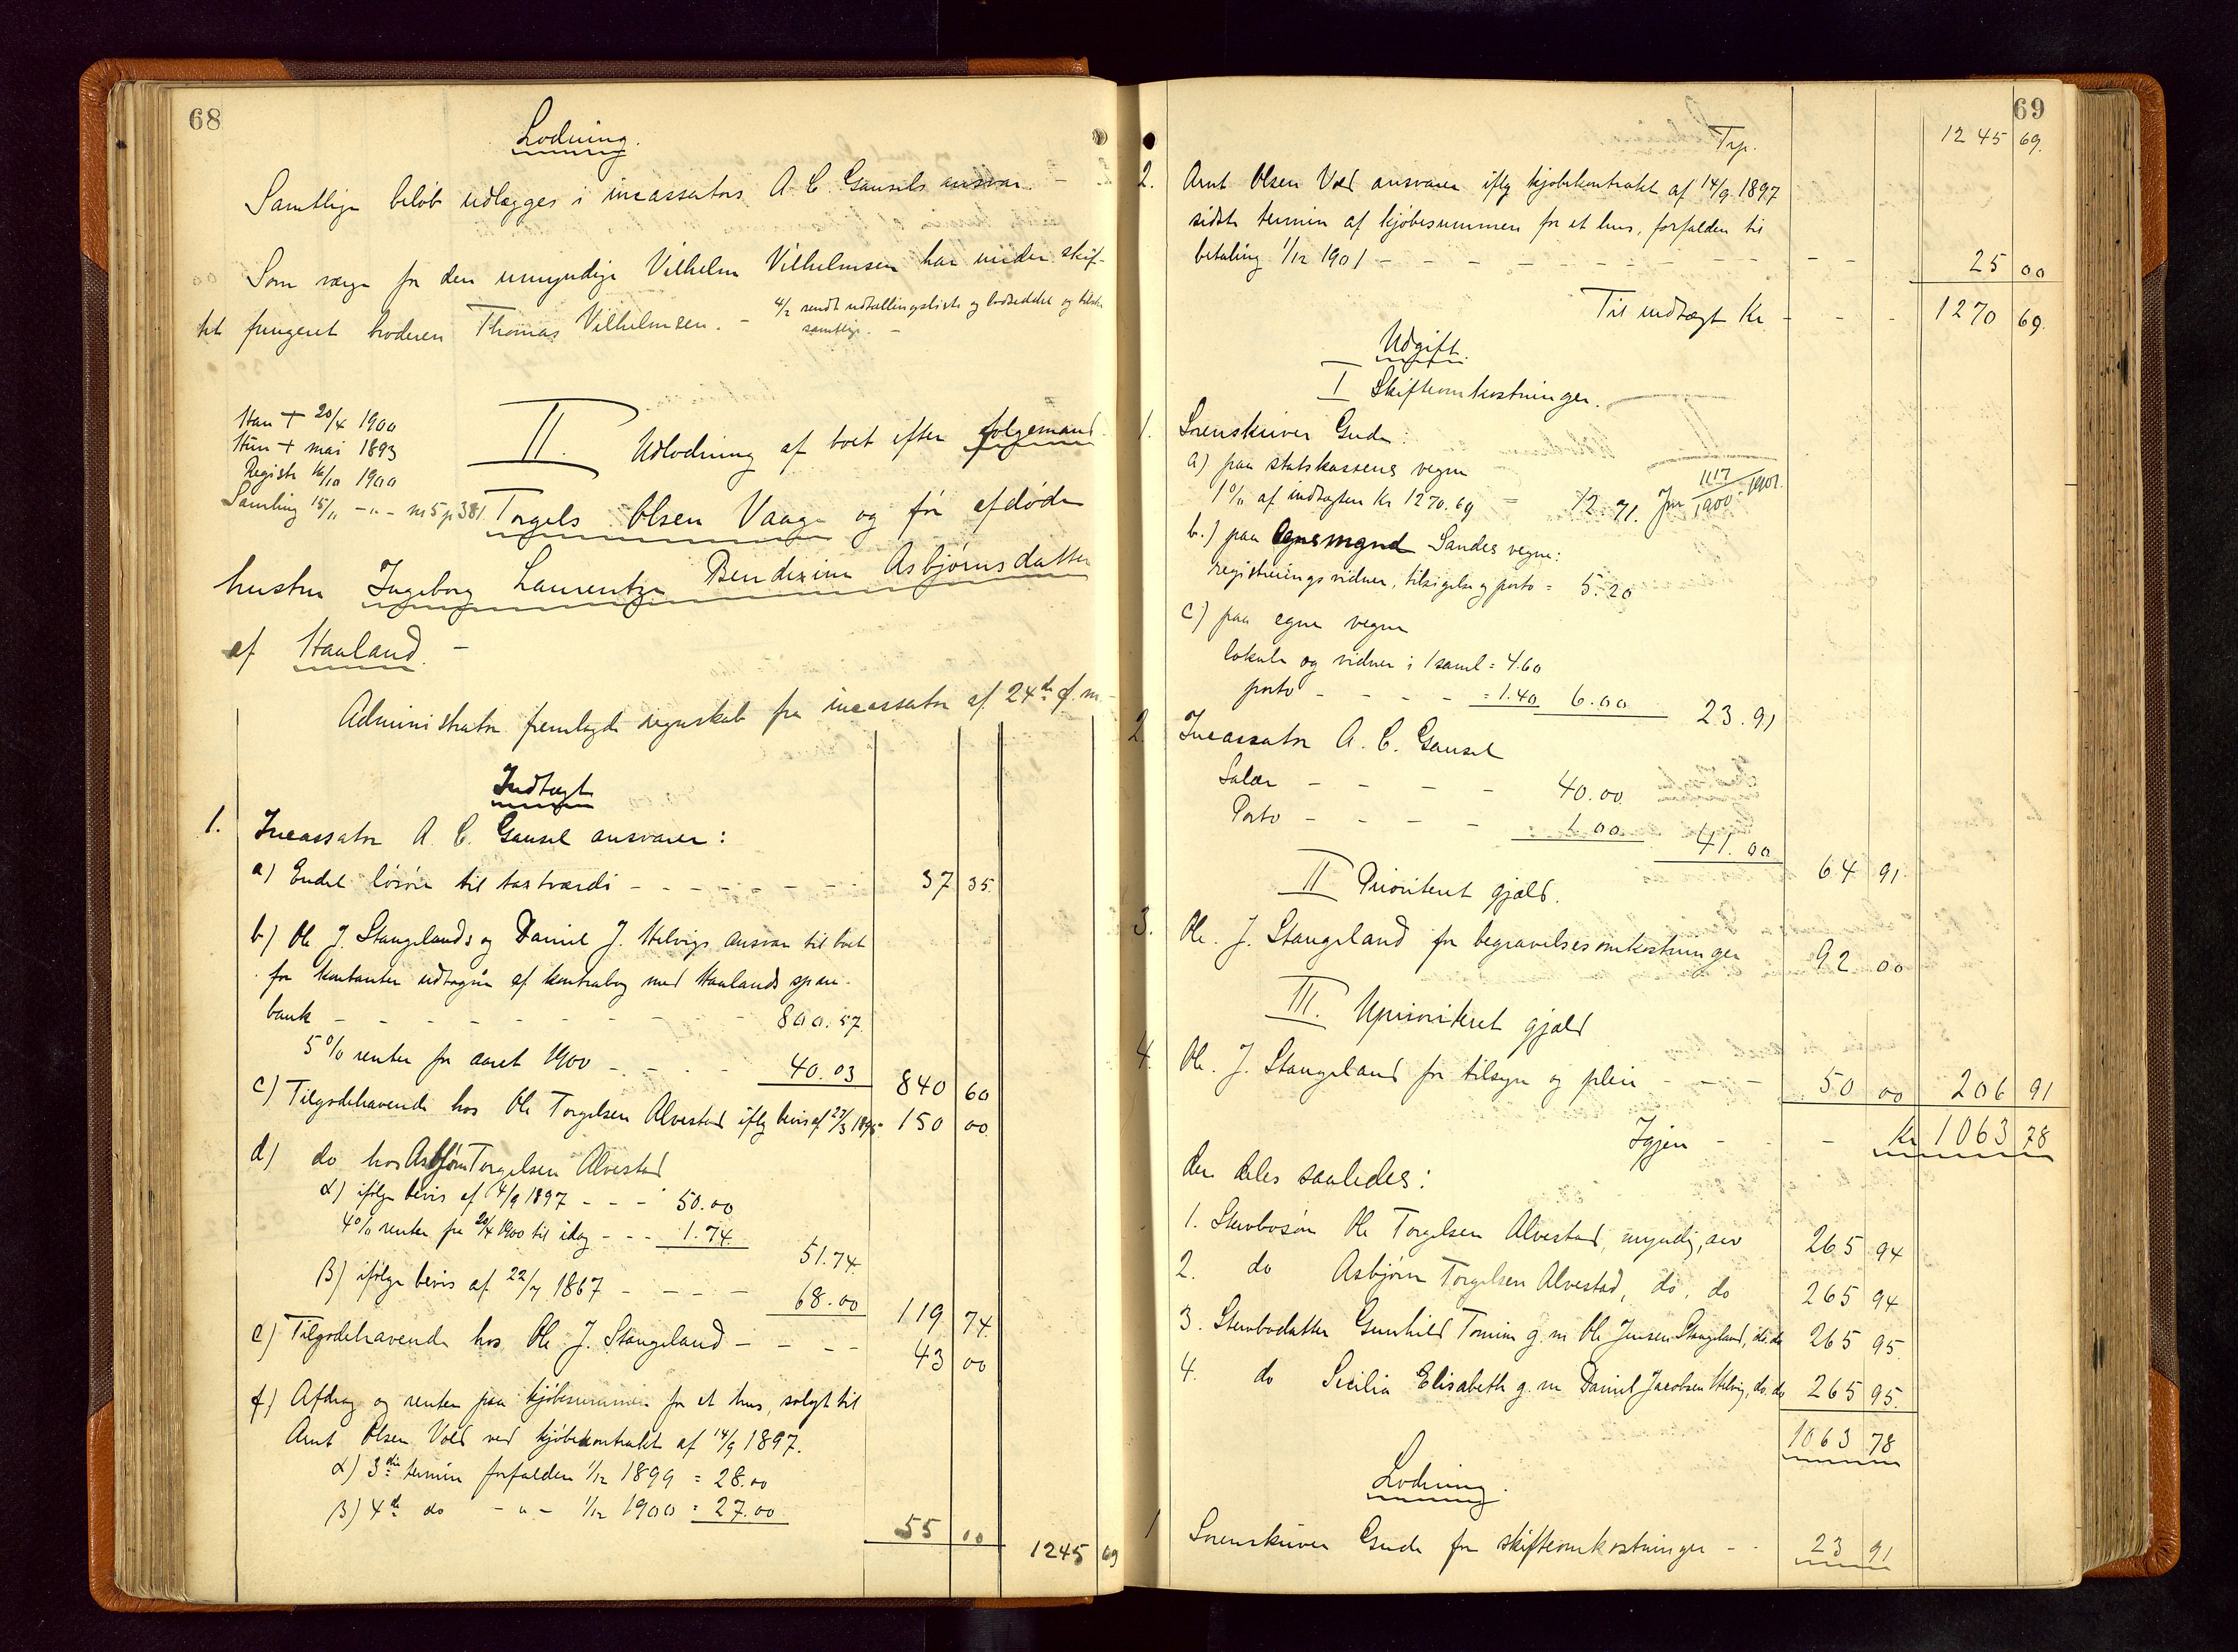 68
Lodning.
Samtlige beløb udlægges i incassators A. C. Gausels ansvar. –
Som værge for den umyndige Vilhelm Vilhelmsen har under skif-
tet fungeret broderen Thomas Vilhelmsen. –
4/2 sendt udtællingsliste og lodseddel og
samtlige. –
Han + 20/4 1900
Hun + mai 1893
Registr 16/10 1900
Samling 15/11 – " – m 5 p 381
II. Udlodning af boet efter følgemand
Torgels Olsen Vaage og før afdøde
hustru Ingeborg Laurentze Bendixine Asbjørnsdatter
af Haaland. –
Administrator fremlagde regnskab fra incassator af 24de d. m.
Indtægt
1. Incassator A. C. Gausel ansvarer:
a) Endel løsøre til taxtværdi – – – – – – 37 35
b) Ole J. Stangelands og Daniel J. Helvigs ansvar til boet
for kontanter udtagne af kontrabog med Haalands spare-
bank – – – – – – – 800.57
5 % renter for aaret 1900 – – – – 40.03 840 60
c) Tilgodehavende hos Ole Torgelsen Alvestad iflg bevis af 22/3 1895 150 00
d) do hos Asbjørn Torgelsen Alvestad
α) ifølge bevis af 14/9 1897 – – – 50.00
4 % renter fra 20/4 1900 til idag – – – 1.74 51.74
β) ifølge bevis af 22/7 1867 – – – – 68.00 119 74
e) Tilgodehavende hos Ole J. Stangeland – – – – 43 00
f) Afdrag og renter paa kjøbesummen for et hus, solgt til
Arnt Olsen Vold ved kjøbekontrakt af 14/9 1897.
α) 3die termin forfalden 1/12 1899 = 28.00
β) 4de do – " – 1/12 1900 = 27.00 55 00 1245 69
69
Trp. 1245 69.
2. Arnt Olsen Vold ansvarer iflg kjøbekontrakt af 14/9 1897
sidste termin af kjøbesummen for et hus, forfalden til
betaling 1/12 1901 – – – – – – – – – 25 00
Til indtægt Kr – – – 1270 69.
Udgift.
I Skifteomkostninger.
1. Sorenskriver Gude:
a) paa statskassens vegne
1 % af indtægten Kr 1270.69 = 12.71. Jnr 1117/1900 – 1901.
b.) paa Lensmand Sandes vegne:
registreringsvidner, tilsigelse og porto = 5.20
c) paa egne vegne
lokale og vidner i 1 saml = 4.60
porto – – – – = 1.40 6.00 23.91
2. Incassator A. C. Gausel
Salær – – – – 40.00
Porto – – – – 1.00 41.00 64 91.
II Prioriteret gjæld.
3. Ole. J. Stangeland for begravelsesomkostninger 92 00
III. Uprioriteret gjæld
4. Ole. J. Stangeland for tilsyn og pleie – – – 50 00 206 91
Igjen – – – Kr 1063 78
der deles saaledes:
1. Stervbosøn Ole Torgelsen Alvestad, myndig, arv 265 94
2. do Asbjørn Torgelsen Alvestad, do, do 265 94
3. Stervbodatter Gunhild Tomine g. m Ole Jensen Stangeland, do. do 265 95.
4. do Sicilia Elisabeth g. m Daniel Jacobsen Helvig, do. do 265 95.
1063 78
Lodning.
1 Sorenskriver Gude for skifteomkostninger – – 23 91